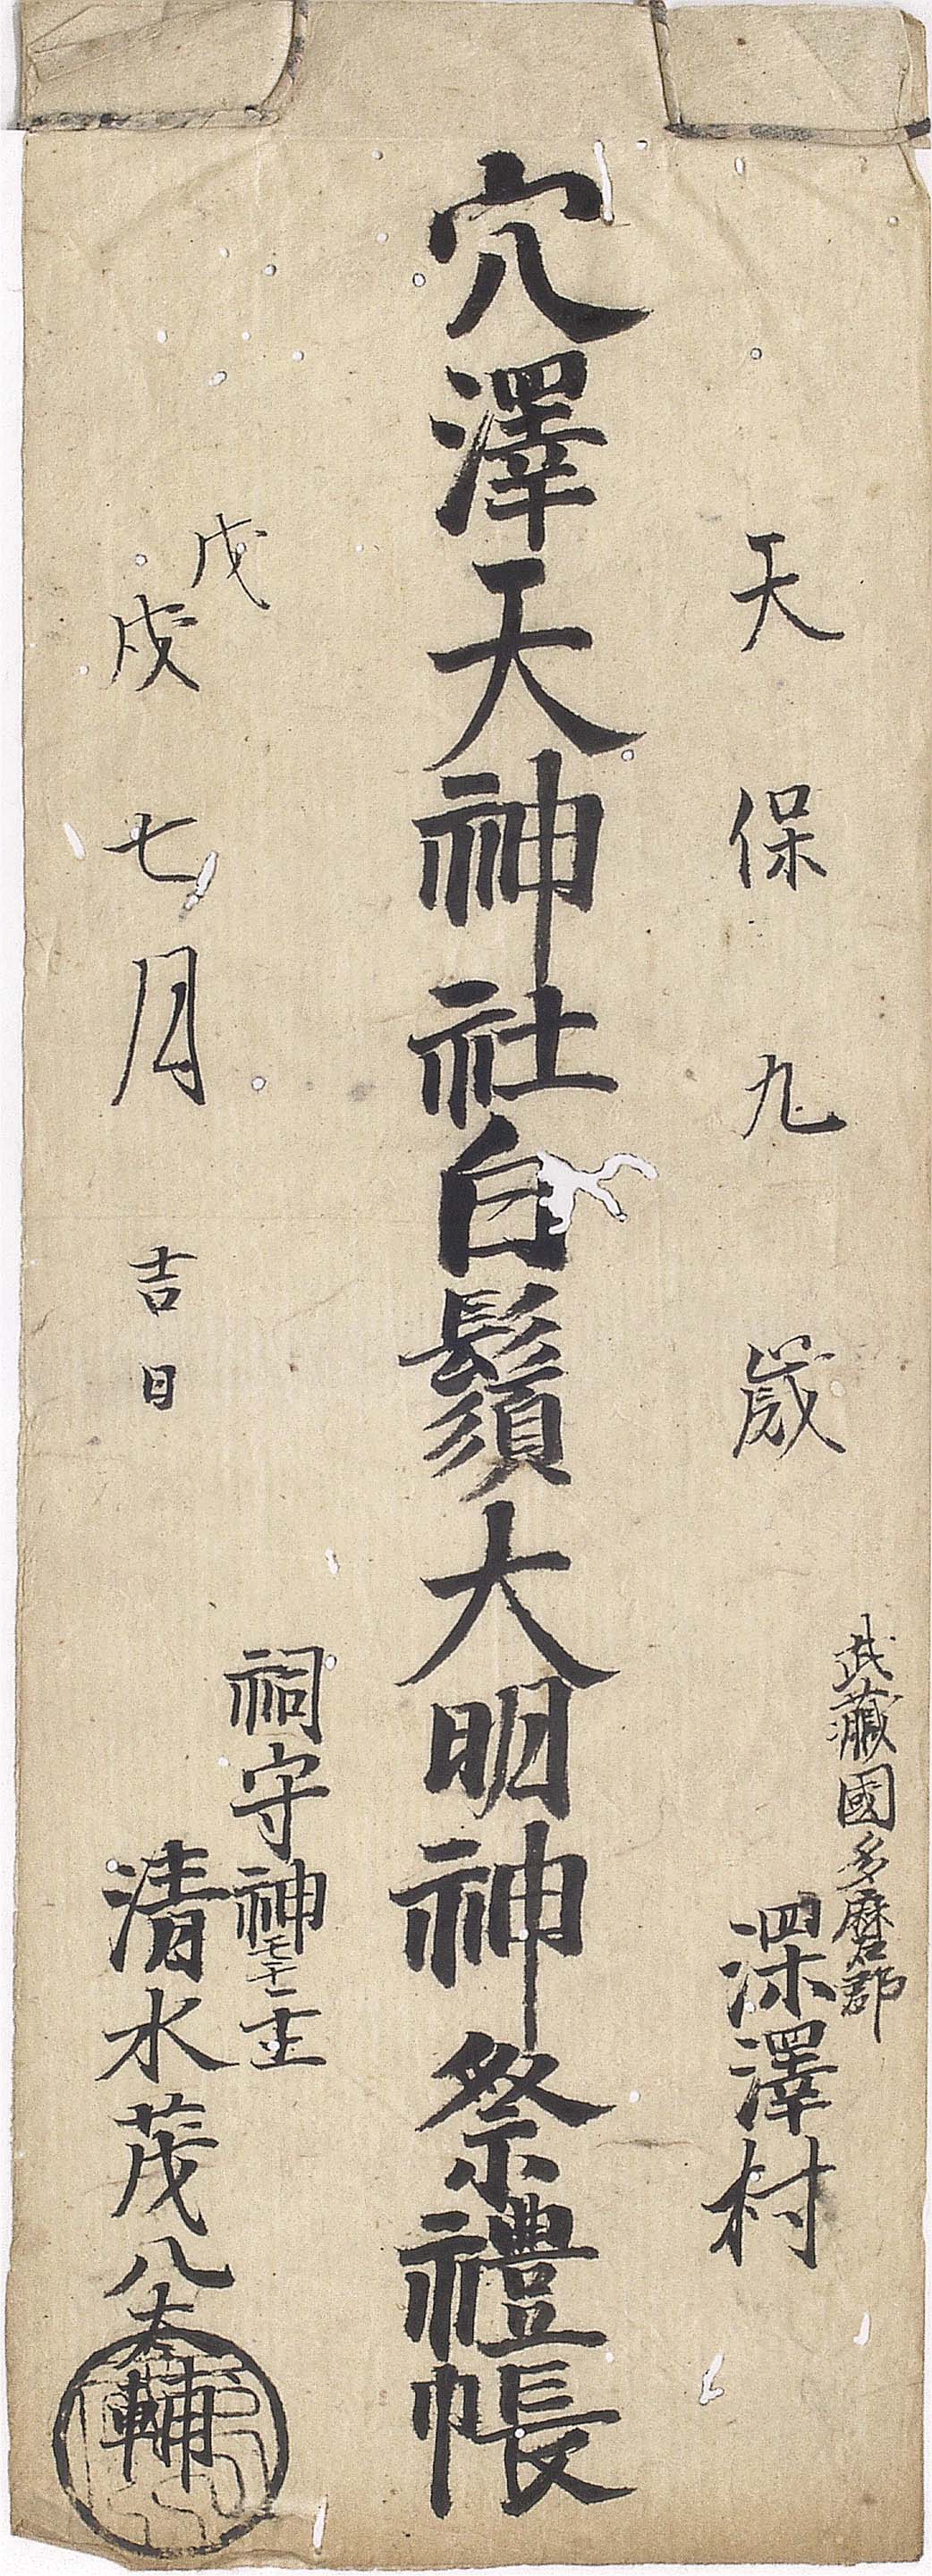 天保九歳
武藏國多磨郡
深澤村
穴澤天神社白鬚大明神祭禮帳
戊戌七月吉日
祠守神主
清水茂八太輔